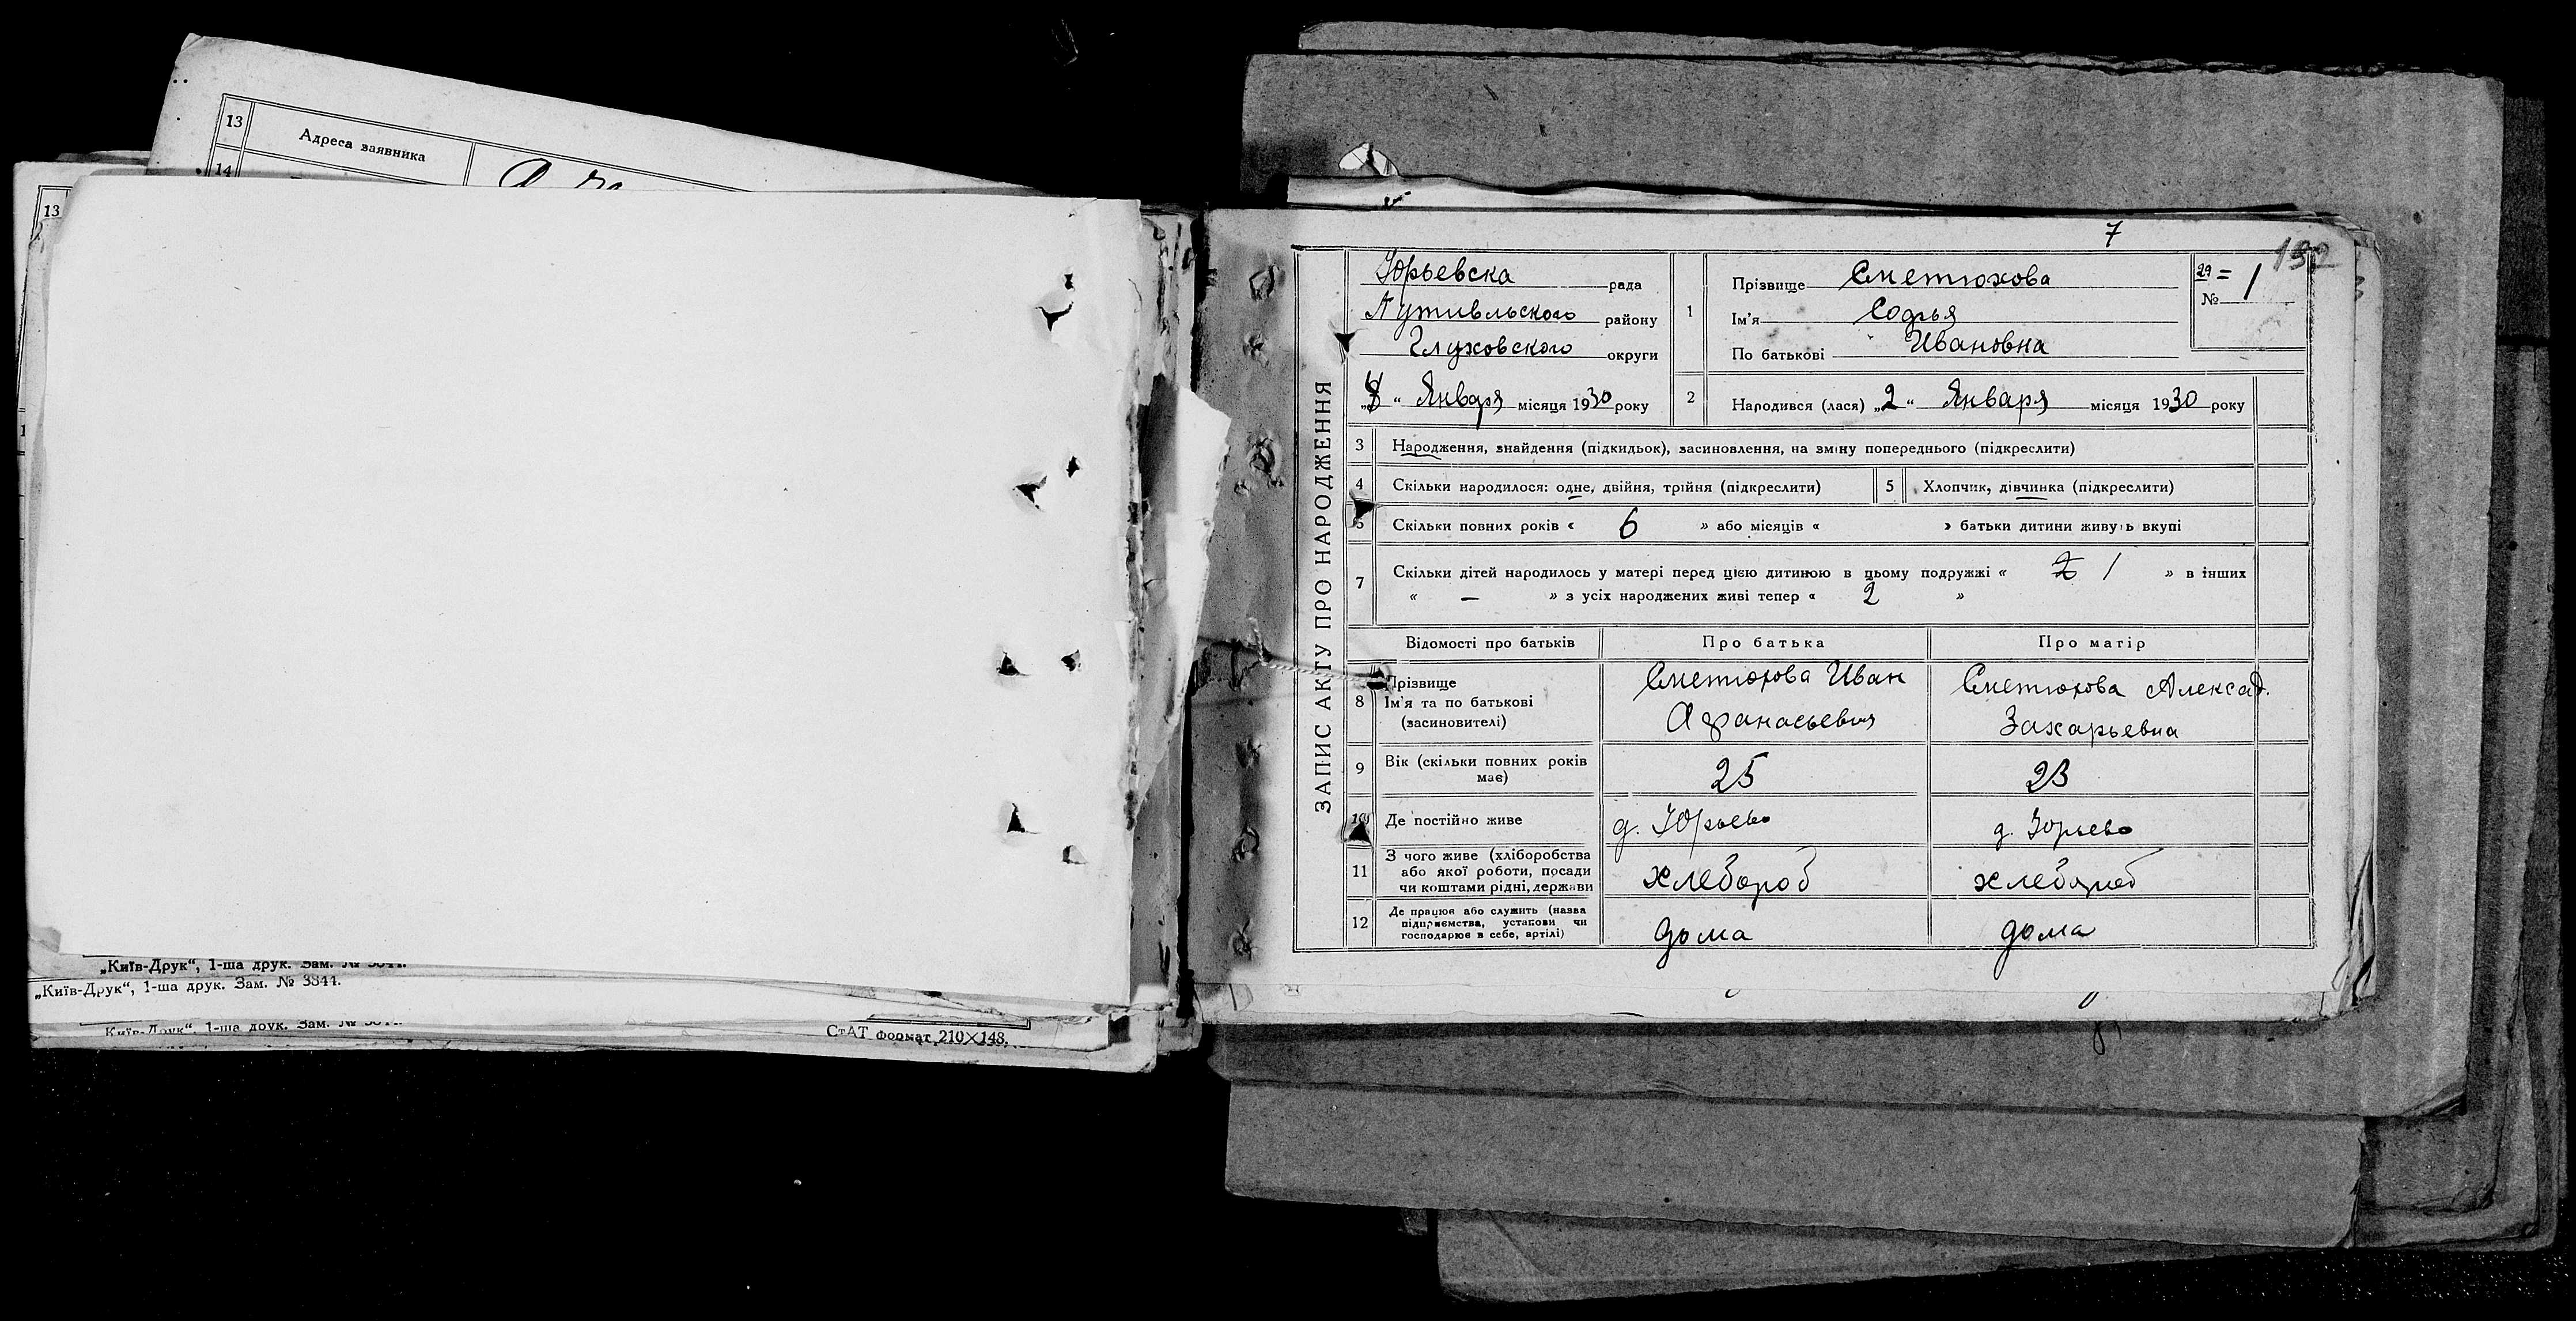 13
Адреса заявника
14
13
„Київ-Друк“, 1-ша друк. Зам. № 3844.
„Київ-Друк“, 1-ша друк. Зам. № 3844.
Київ-Друк“, 1-ша друк. Зам. №
СтАТ формат 210×148.
7
192
ЗАПИС АКТУ ПРО НАРОДЖЕННЯ
Юрьевска рада
Путивльского району
Глуховского округи
Января місяця 1930 року
1
Прізвище Сметюхова
Ім'я Софья
По батькові Ивановна
29 =
№ 1
2
Народився (лася) „2“ Января місяця 1930 року
3 Народження, знайдення (підкидьок), засиновлення, на зміну попереднього (підкреслити)
4 Скільки народилося: одне, двійня, трійня (підкреслити) 5 Хлопчик, дівчинка (підкреслити)
6 Скільки повних років « 6 » або місяців « » батьки дитини живуть вкупі
7 Скільки дітей народилось у матері перед цією дитиною в цьому подружжі « 2 1 » в інших
« – » з усіх народжених живі тепер « 2 »
Відомості про батьків Про батька Про матір
8 Прізвище
Ім'я та по батькові
(засиновителі)
Сметюхова Иван
Афанасьевич
Сметюхова Алексад.
Захарьевна
9 Вік (скільки повних років
має)
25 23
10 Де постійно живе д. Юрьево д. Юрьево
11 З чого живе (хліборобства
або якої роботи, посади
чи коштами рідні, держави
хлебороб хлебороб
12 Де працює або служить (назва
підприємства, установи чи
господарює в себе, артілі)
дома дома